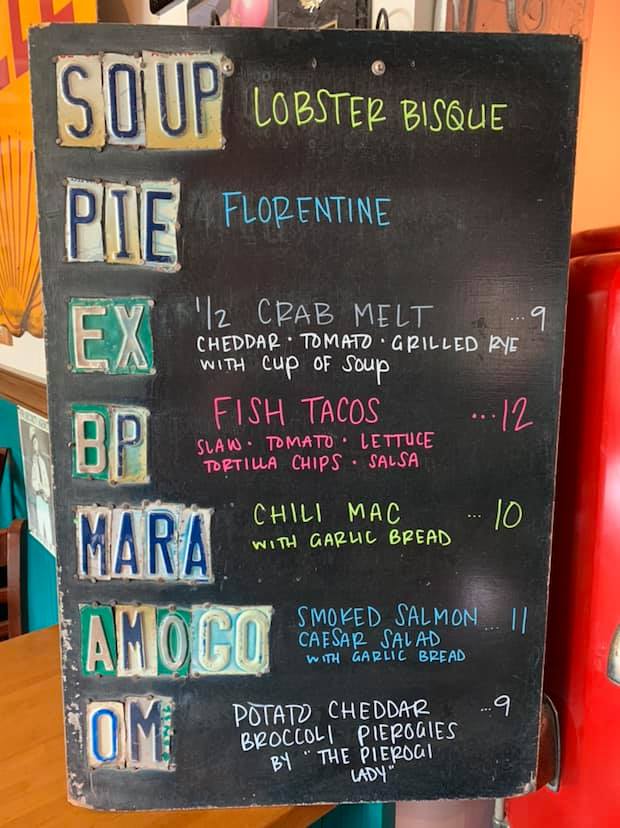 SOUP LOBSTER BISQUE
PIE FLORENTINE
EX 1/2 CRAB MELT ...9
CHEDDAR · TOMATO · GRILLED RYE
WITH CUP OF SOUP
BP FISH TACOS ...12
SLAW · TOMATO · LETTUCE
TORTILLA CHIPS · SALSA
MARA CHILI MAC ... 10
WITH GARLIC BREAD
AMOCO SMOKED SALMON ... 11
CAESAR SALAD
WITH GARLIC BREAD
OM POTATO CHEDDAR ...9
BROCCOLI PIEROGIES
BY "THE PIEROGI
LADY"